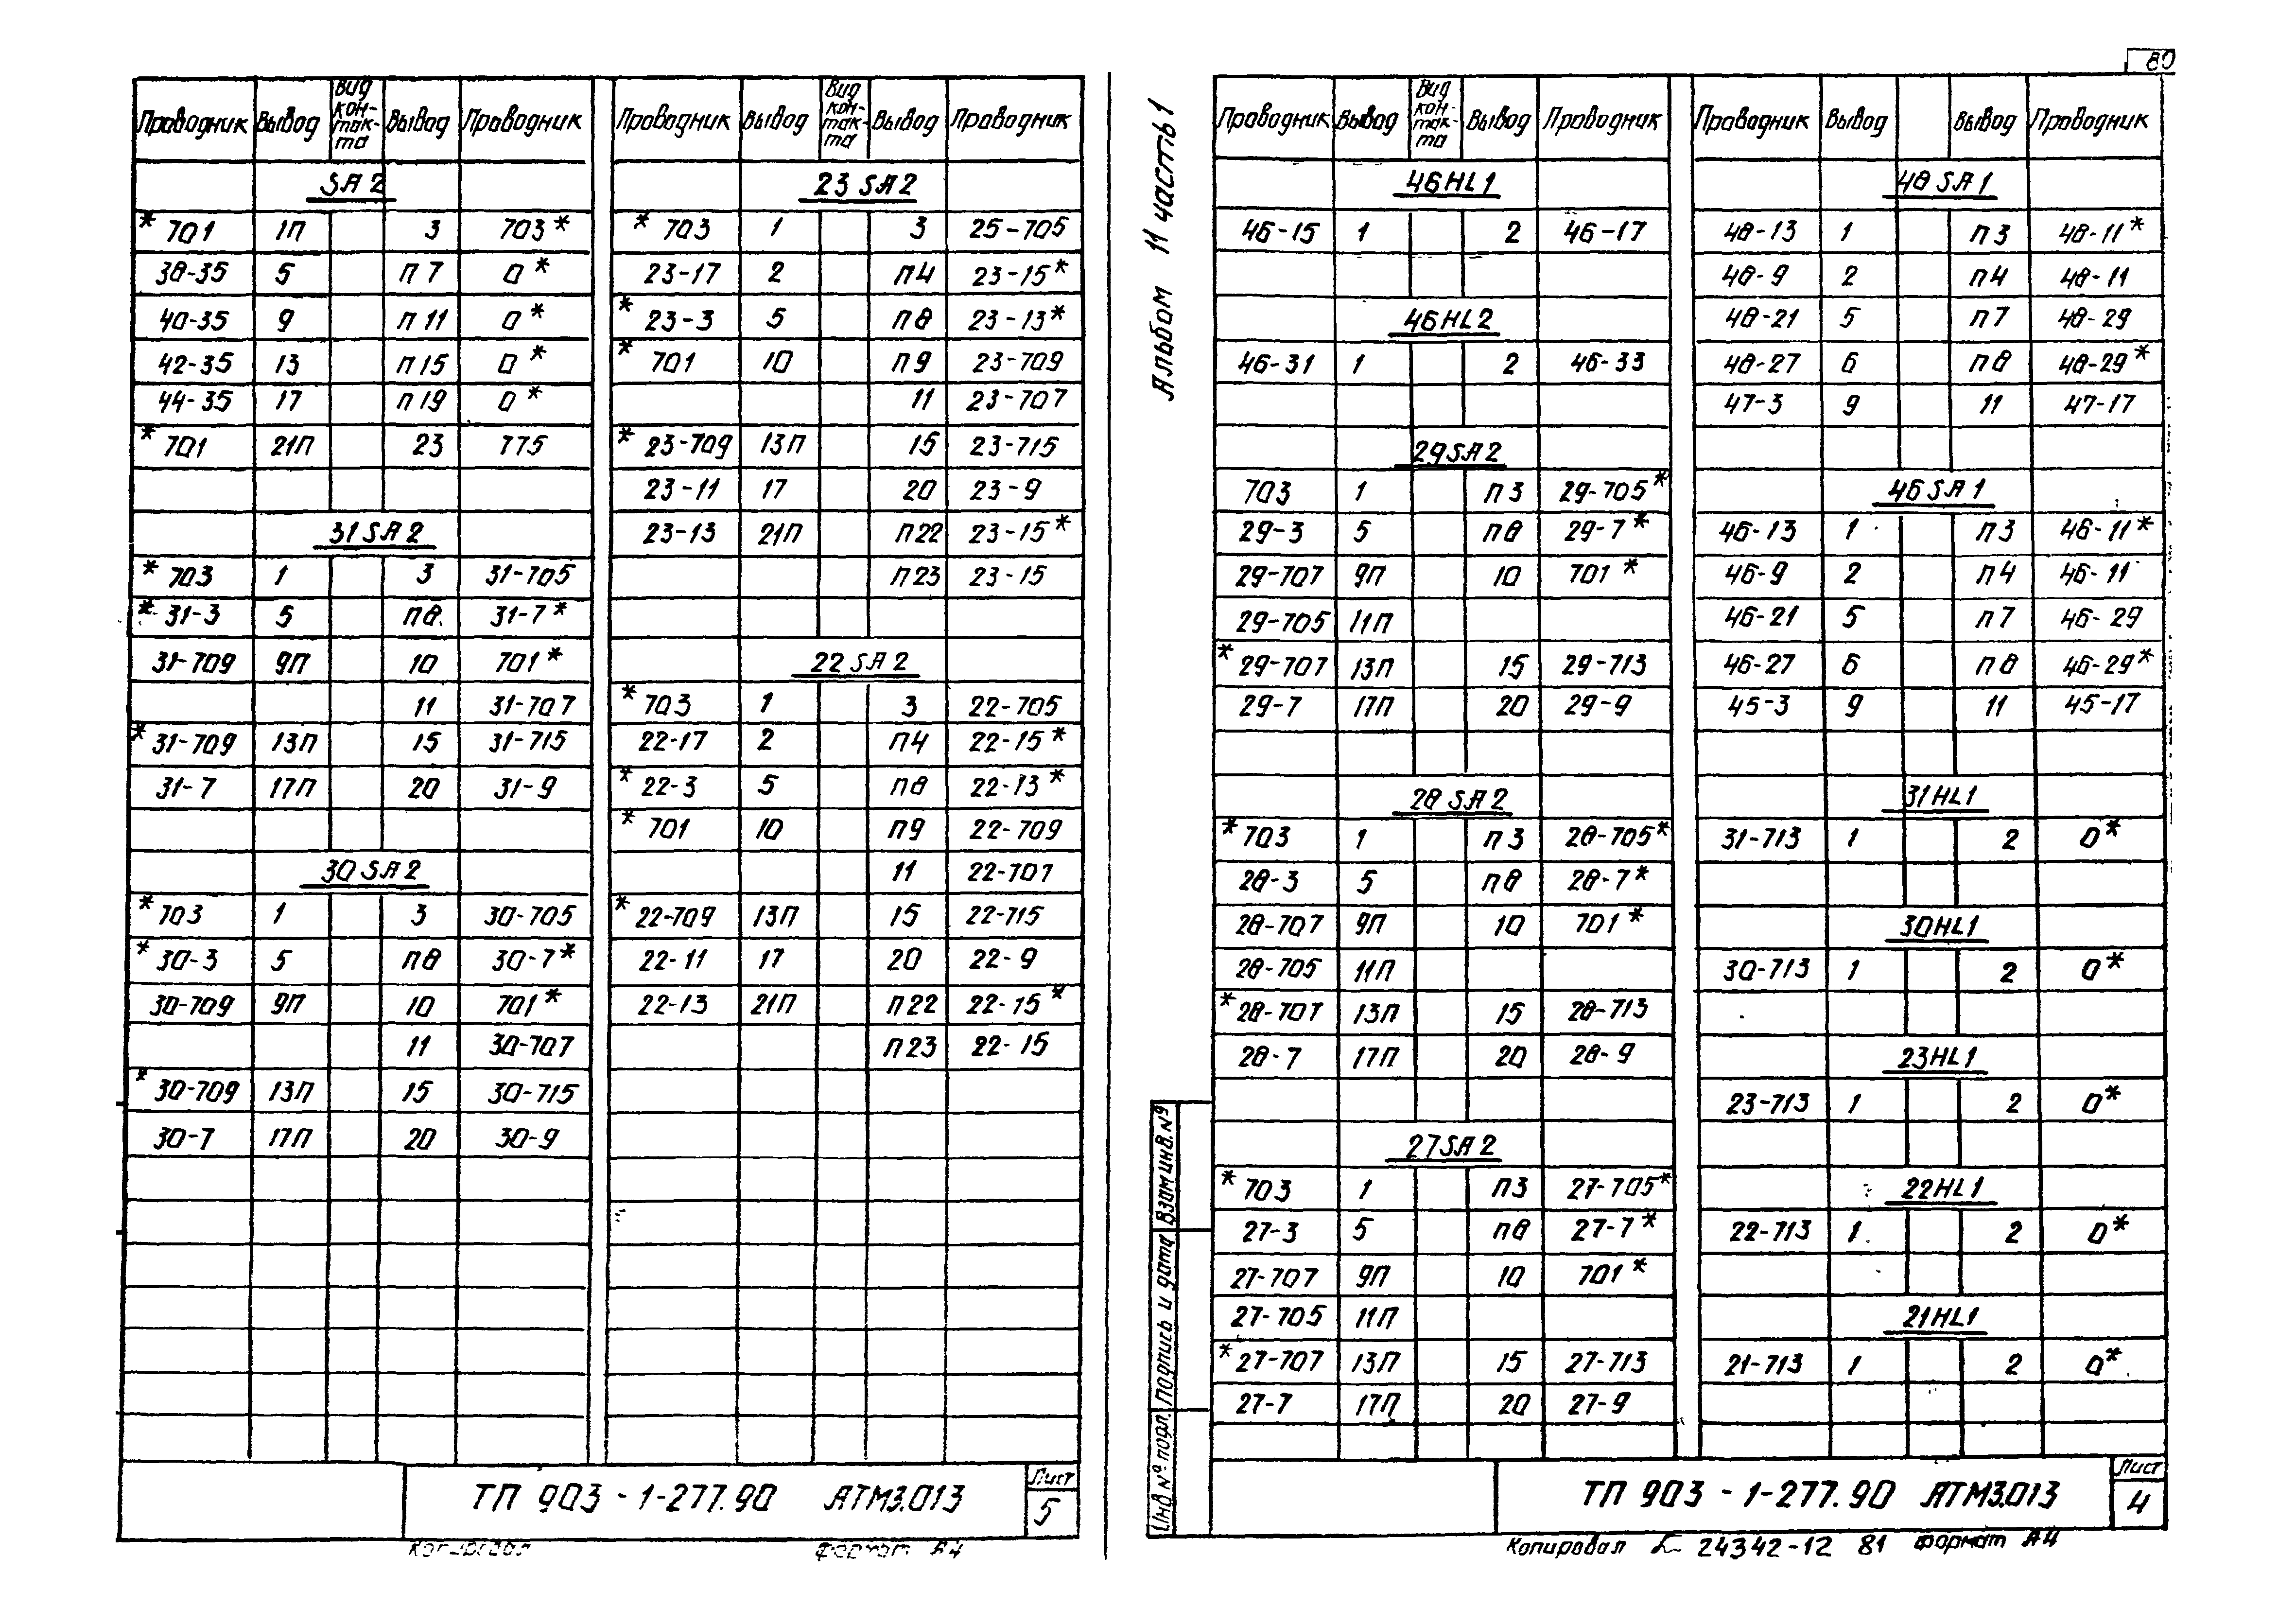 Проводник Вывод Вид кон-так-та Вывод Проводник
SA2
*701 1П 3 703*
38-35 5 П7 0*
40-35 9 П11 0*
42-35 13 П15 0*
44-35 17 П19 0*
*701 21П 23 775
31SA2
*703 1 3 31-705
*31-3 5 П8 31-7*
31-709 9П 10 701*
11 31-707
*31-709 13П 15 31-715
31-7 17П 20 31-9
30SA2
*703 1 3 30-705
*30-3 5 П8 30-7*
30-709 9П 10 701*
11 30-707
*30-709 13П 15 30-715
30-7 17П 20 30-9
Проводник Вывод Вид кон-так-та Вывод Проводник
23SA2
*703 1 3 25-705
23-17 2 П4 23-15*
*23-3 5 П8 23-13*
*701 10 П9 23-709
11 23-707
*23-709 13П 15 23-715
23-11 17 20 23-9
23-13 21П П22 23-15*
П23 23-15
22SA2
*703 1 3 22-705
22-17 2 П4 22-15*
*22-3 5 П8 22-13*
*701 10 П9 22-709
11 22-707
*22-709 13П 15 22-715
22-11 17 20 22-9
22-13 21П П22 22-15*
П23 22-15
ТП 903-1-277.90 АТМ3.013
Лист
5
Копировал формат А4
80
Альбом 11 часть 1
Проводник Вывод Вид кон-так-та Вывод Проводник
46HL1
46-15 1 2 46-17
46HL2
46-31 1 2 46-33
29SA2
703 1 П3 29-705*
29-3 5 П8 29-7*
29-707 9П 10 701*
29-705 11П
*29-707 13П 15 29-713
29-7 17П 20 29-9
28SA2
*703 1 П3 28-705*
28-3 5 П8 28-7*
28-707 9П 10 701*
28-705 11П
*28-707 13П 15 28-713
28-7 17П 20 28-9
27SA2
*703 1 П3 27-705*
27-3 5 П8 27-7*
27-707 9П 10 701*
27-705 11П
*27-707 13П 15 27-713
27-7 17П 20 27-9
Проводник Вывод Вывод Проводник
48SA1
48-13 1 П3 48-11*
48-9 2 П4 48-11
48-21 5 П7 48-29
48-27 6 П8 48-29*
47-3 9 11 47-17
46SA1
46-13 1 П3 46-11*
46-9 2 П4 46-11
46-21 5 П7 46-29
46-27 6 П8 46-29*
45-3 9 11 45-17
31HL1
31-713 1 2 0*
30HL1
30-713 1 2 0*
23HL1
23-713 1 2 0*
22HL1
22-713 1 2 0*
21HL1
21-713 1 2 0*
Инв № подл. Подпись и дата Взам инв. №
ТП 903-1-277.90 АТМ3.013
Лист
4
Копировал 24342-12 81 формат А4